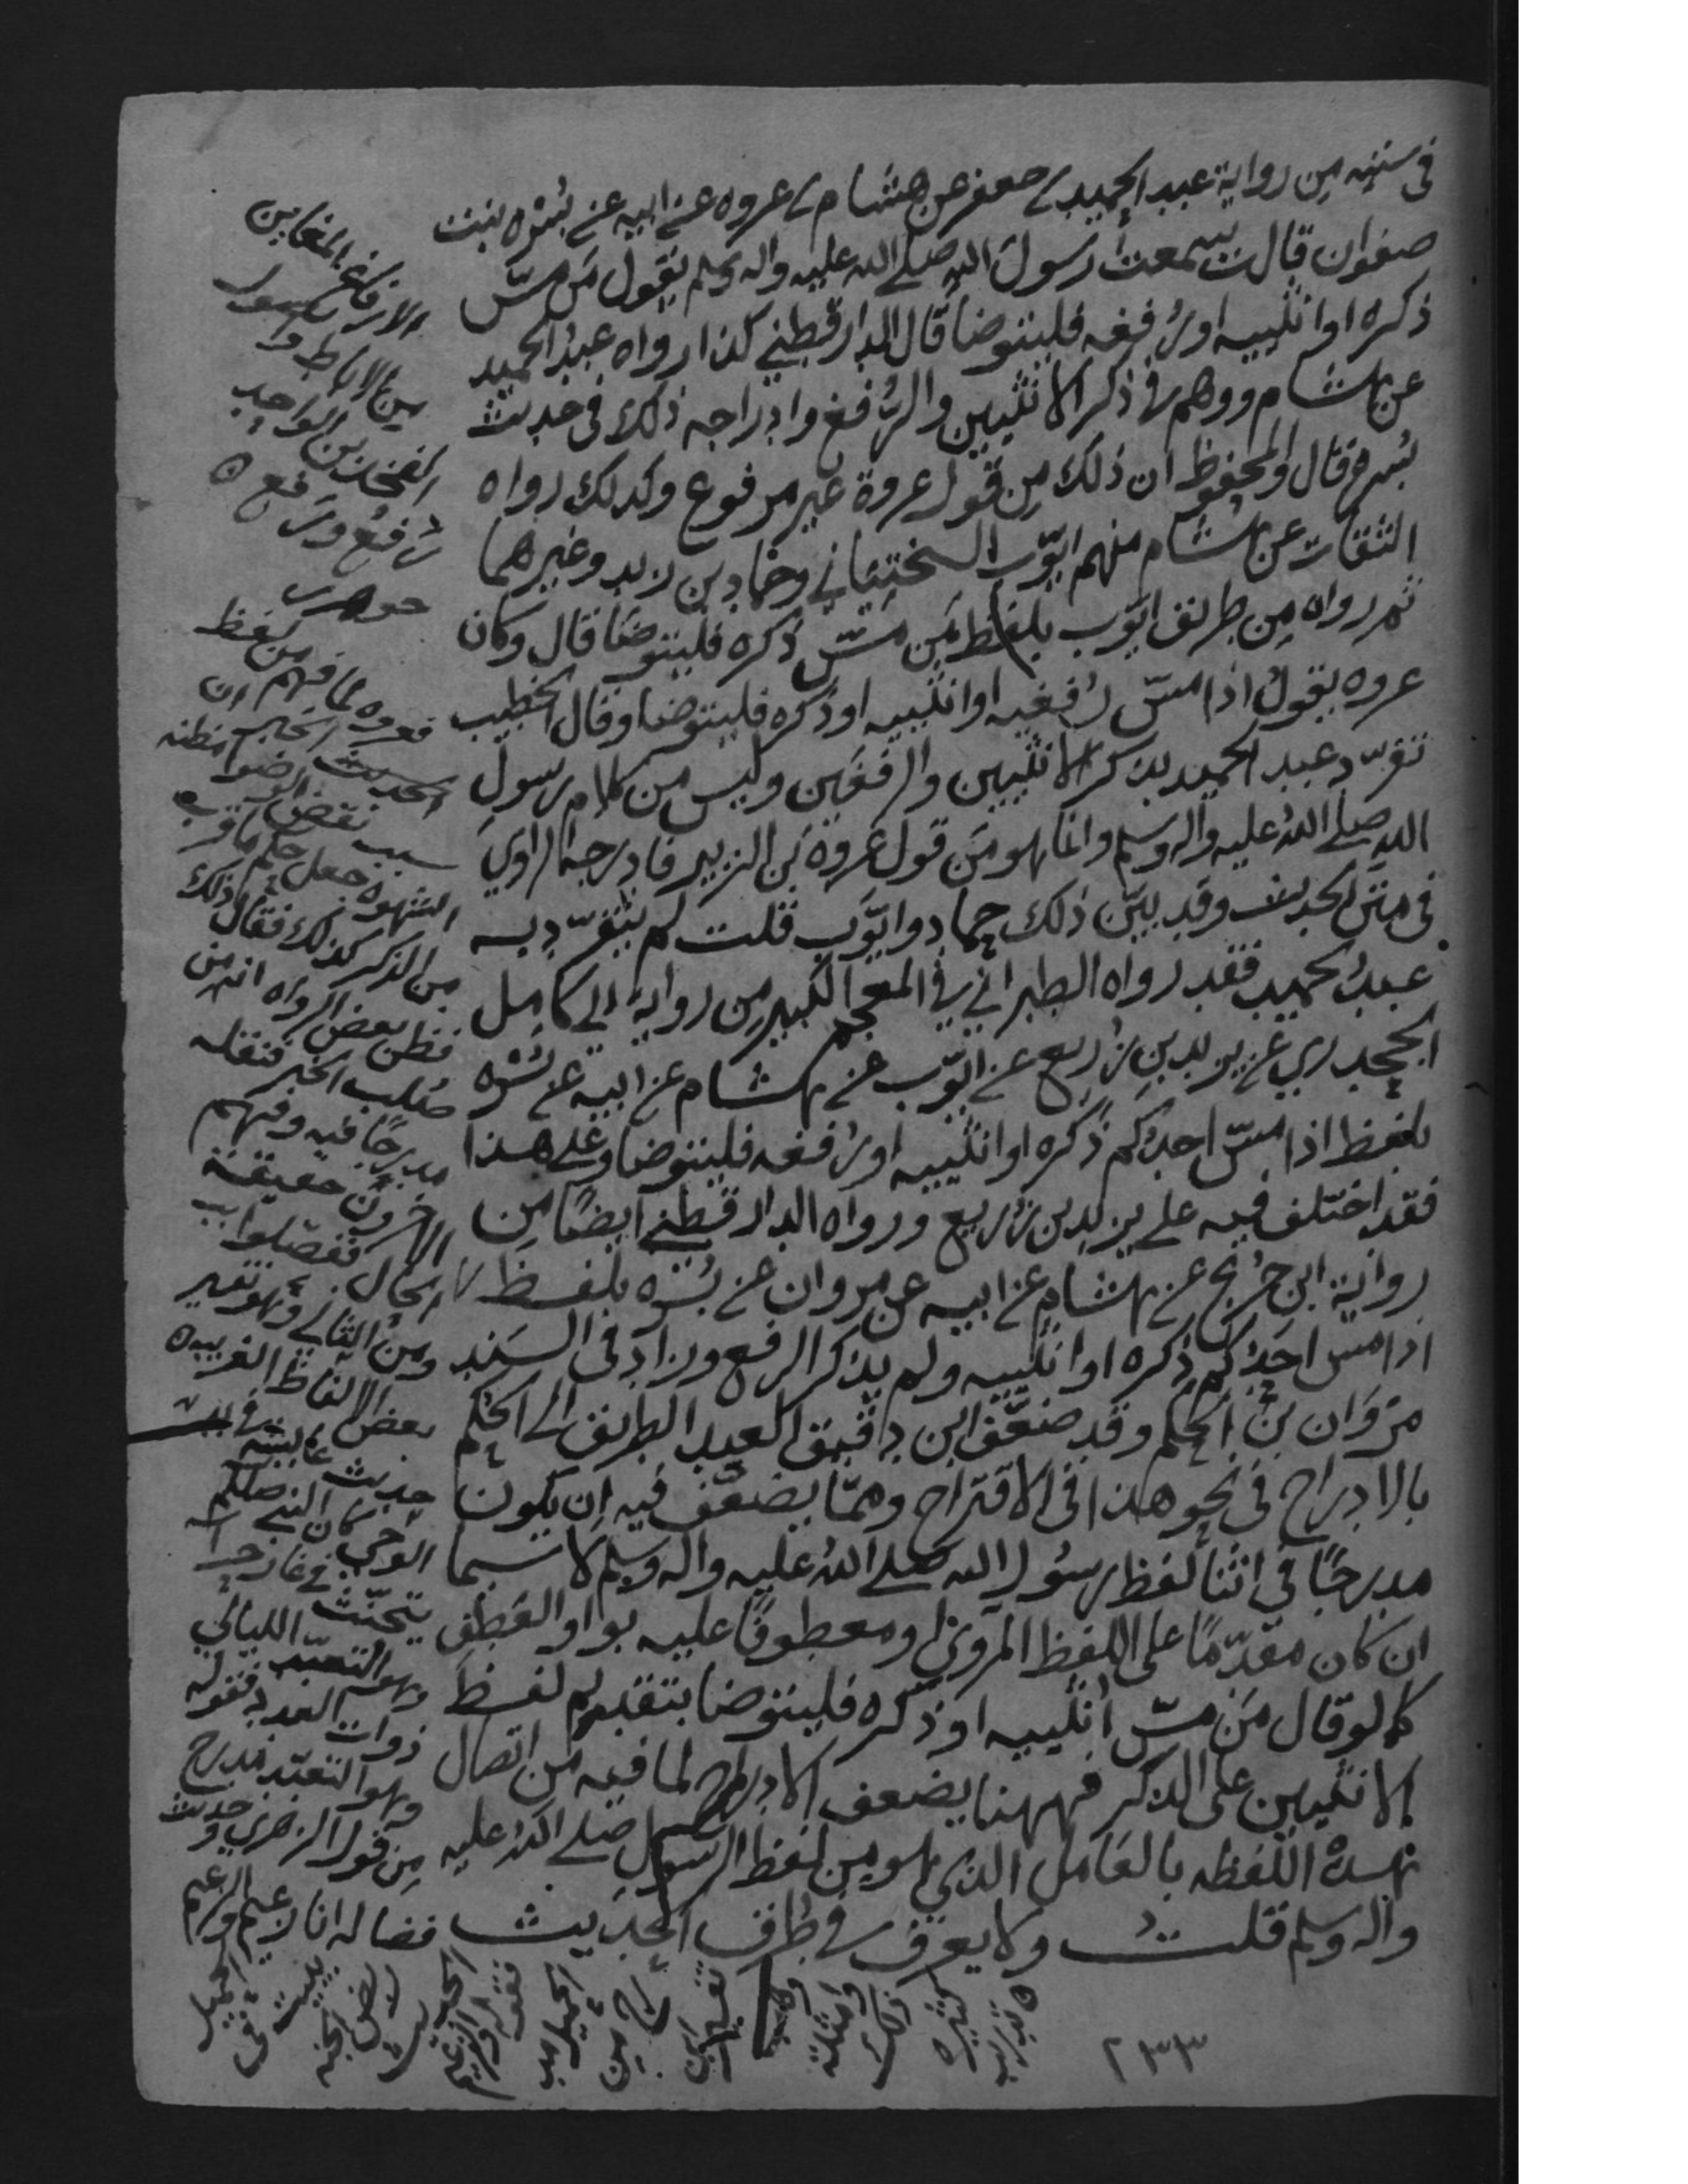 في سننه من رواية عبد الحميد بن جعفر عن هشام بن عروه عن ابيه عن بُسْره بنت
صفوان قالت سمعت رسول الله صلى الله عليه واله وسلم يقول من مسّ
ذكره او انثييه او رُفغه فليتوضا قال الدارقطني كذا رواه عبد الحميد
عن هشام ووهم في ذكر الانثيين والرُفغ وادراجه ذلك في حديث
بُسره قال والمحفوظ ان ذلك من قول عروة غير مرفوع وكذلك رواه
الثقات عن هشام منهم ايوّب السختياني وحماد بن زيد وغيرهما
ثم رواه من طريق ايوب بلفظ من مسّ ذكره فليتوضا قال وكان
عروه يقول اذا مسّ رُفغيه او انثييه او ذكره فليتوضا وقال الخطيب
تفرّد عبد الحميد بذكر الانثيين والرفغين وليس من كلام رسول
الله صلى الله عليه واله وسلم وانما هو من قول عروة بن الزبير فادرجه الراوي
في متن الحديث وقد بيّن ذلك حماد وايوّب قلت لم يتفرّد به
عبد الحميد فقد رواه الطبراني في المعجم الكبير من رواية ابي كامل
الجحدري عن يزيد بن زُريع عن ايوّب عن هشام عن ابيه عن بُسْره
بلفظ اذا مسّ احدكم ذكره او انثييه او رُفغه فليتوضا وعلى هذا
فقد اختلف فيه على يزيد بن زُريع ورواه الدارقطني ايضًا من
رواية ابن جُريج عن هشام عن ابيه عن مروان عن بُسْره بلفظ
اذا مس احدكم ذكره او انثييه ولم يذكر الرفع وزاد في السَند
مَرْوَان بن الحكم وقد ضعّف ابن دقيق العيد الطريق الى الحكم
بالادراج في نحو هذا في الاقتراح وممّا يضعّف فيه ان يكون
مدرجًا في اثنا لفظ رسول الله صلى الله عليه واله وسلم لا سيما
ان كان مقدّمًا على اللفظ المروي او معطوفًا عليه بواو العَطف
كما لو قال مَن مسّ انثييه او ذكره فليتوضا بتقديم لفظ
الانثيين على الذكر فههنا يضعف الادراج لما فيه من اتصال
هذه اللفظه بالعَامل الذي هو من لفظ الرسول صلى الله عليه
واله وسلم قلت ولا يعرف في طُرق الحَديث
الارفاغ المغابن
من الاباط واصول
الفخذين الواحد
رُفغ ورَفغ ه
جوهري
فعروه لما فهم من لفظ
الحديث الخبر ان
سبب نقض الوضوا مظنه
الشهوه جعل حكم ما قرب
من الذكر كذلك فقال ذلك
فظن بعض الرواه انه من
صُلب الخبر فنقله
مدرجًا فيه وفهم
الاخرون حقيقة
الحال ففصلوا
ومن الثاني وهو تفسير
بعض الالفاظ الغريبه
حديث عائشه في بدء
الوحي كان النبي صللم
يتحنّث في غار حرا
وهو التعبّد الليالي
ذوات العدد فقوله
وهو التعبّد مدرج
من قول الزهري وحديث
فضاله انا زعيم والزعيم
الحميل